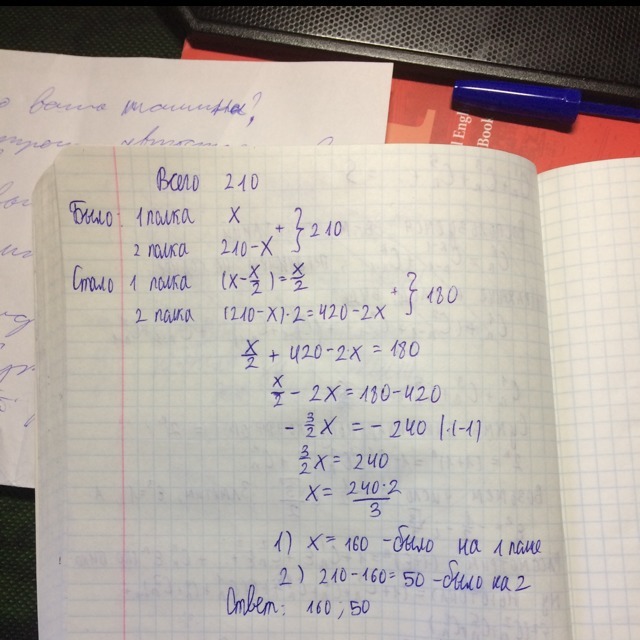 о ваша машина?
Всего 210
Было: 1 полка x
2 полка 210-x + } 210
Стало 1 полка (x - x/2) = x/2
2 полка (210-x)·2=420-2x + } 180
x/2 + 420-2x = 180
x/2 - 2x = 180-420
- 3/2 x = - 240 |·(-1)
3/2 x = 240
x = 240·2/3
1) x = 160 - было на 1 полке
2) 210-160=50 - было на 2
Ответ: 160; 50
Engl
Book